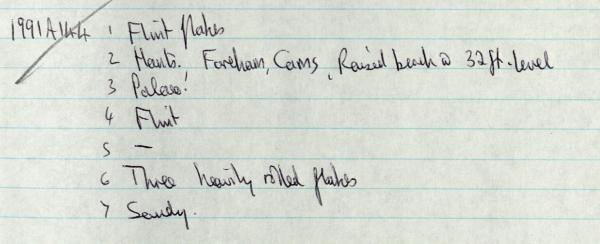 1991A144 1 Flint flakes
2 Hants. Fareham, Cams, Raised beach @ 32ft. level
3 Palaeo!
4 Flint
5 —
6 Three heavily rolled flakes
7 Sandy.